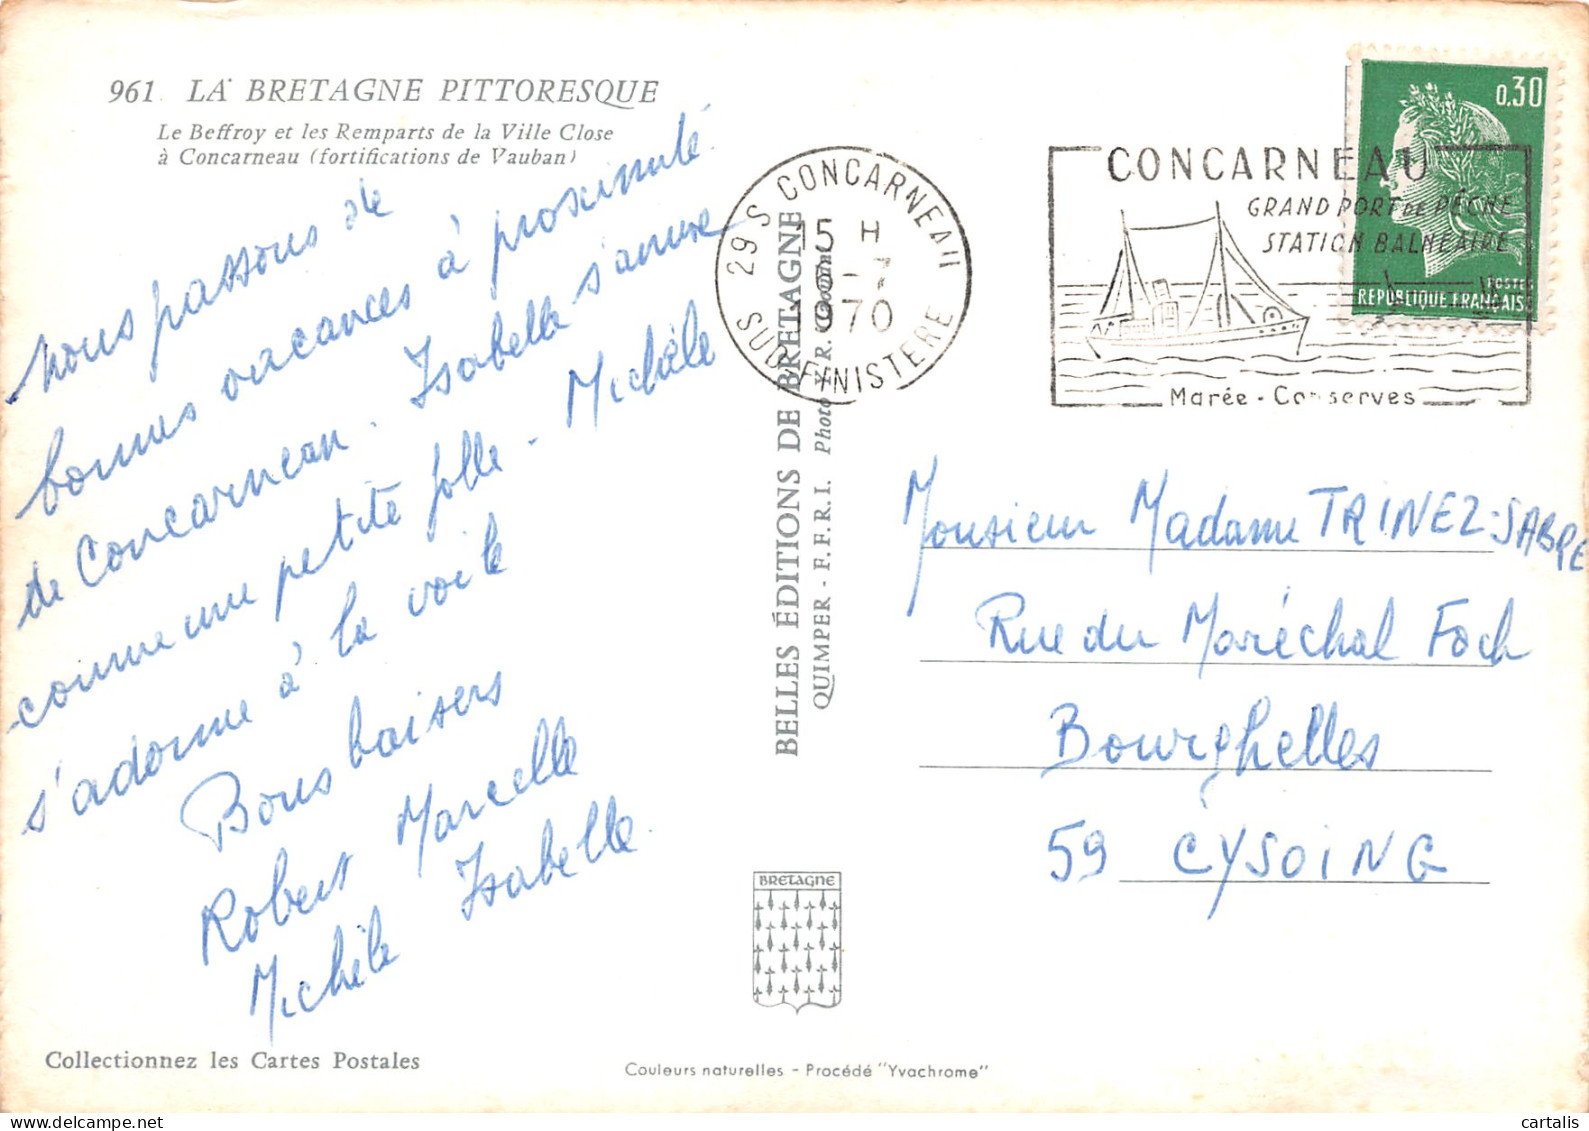 961 LA BRETAGNE PITTORESQUE
Le Beffroy et les Remparts de la Ville Close
à Concarneau (fortifications de Vauban)
nous passons de
bonnes vacances à proximité
de Concarneau. Isabelle s'amuse
comme une petite folle - Michèle
s'adonne à la voile
Bons baisers
Robert Marcelle
Michèle Isabelle
Collectionnez les Cartes Postales
BELLES ÉDITIONS DE BRETAGNE
QUIMPER - F.F.R.I. Photo R.
BRETAGNE
Couleurs naturelles - Procédé "Yvachrome"
29 S CONCARNEAU
15 H
6-7
1970
SUD-FINISTERE
CONCARNEAU
GRAND PORT DE PÊCHE
STATION BALNÉAIRE
Marée - Conserves
0,30
POSTES
REPUBLIQUE FRANÇAISE
Monsieur Madame TRINEZ-SABRE
Rue du Maréchal Foch
Bourghelles
59 CYSOING
cartalis